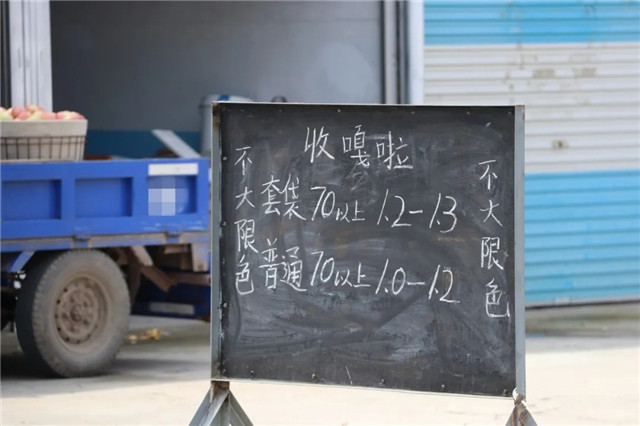 收嘎啦
不大限色
套袋70以上 1.2-1.3
普通70以上 1.0-1.2
不大限色